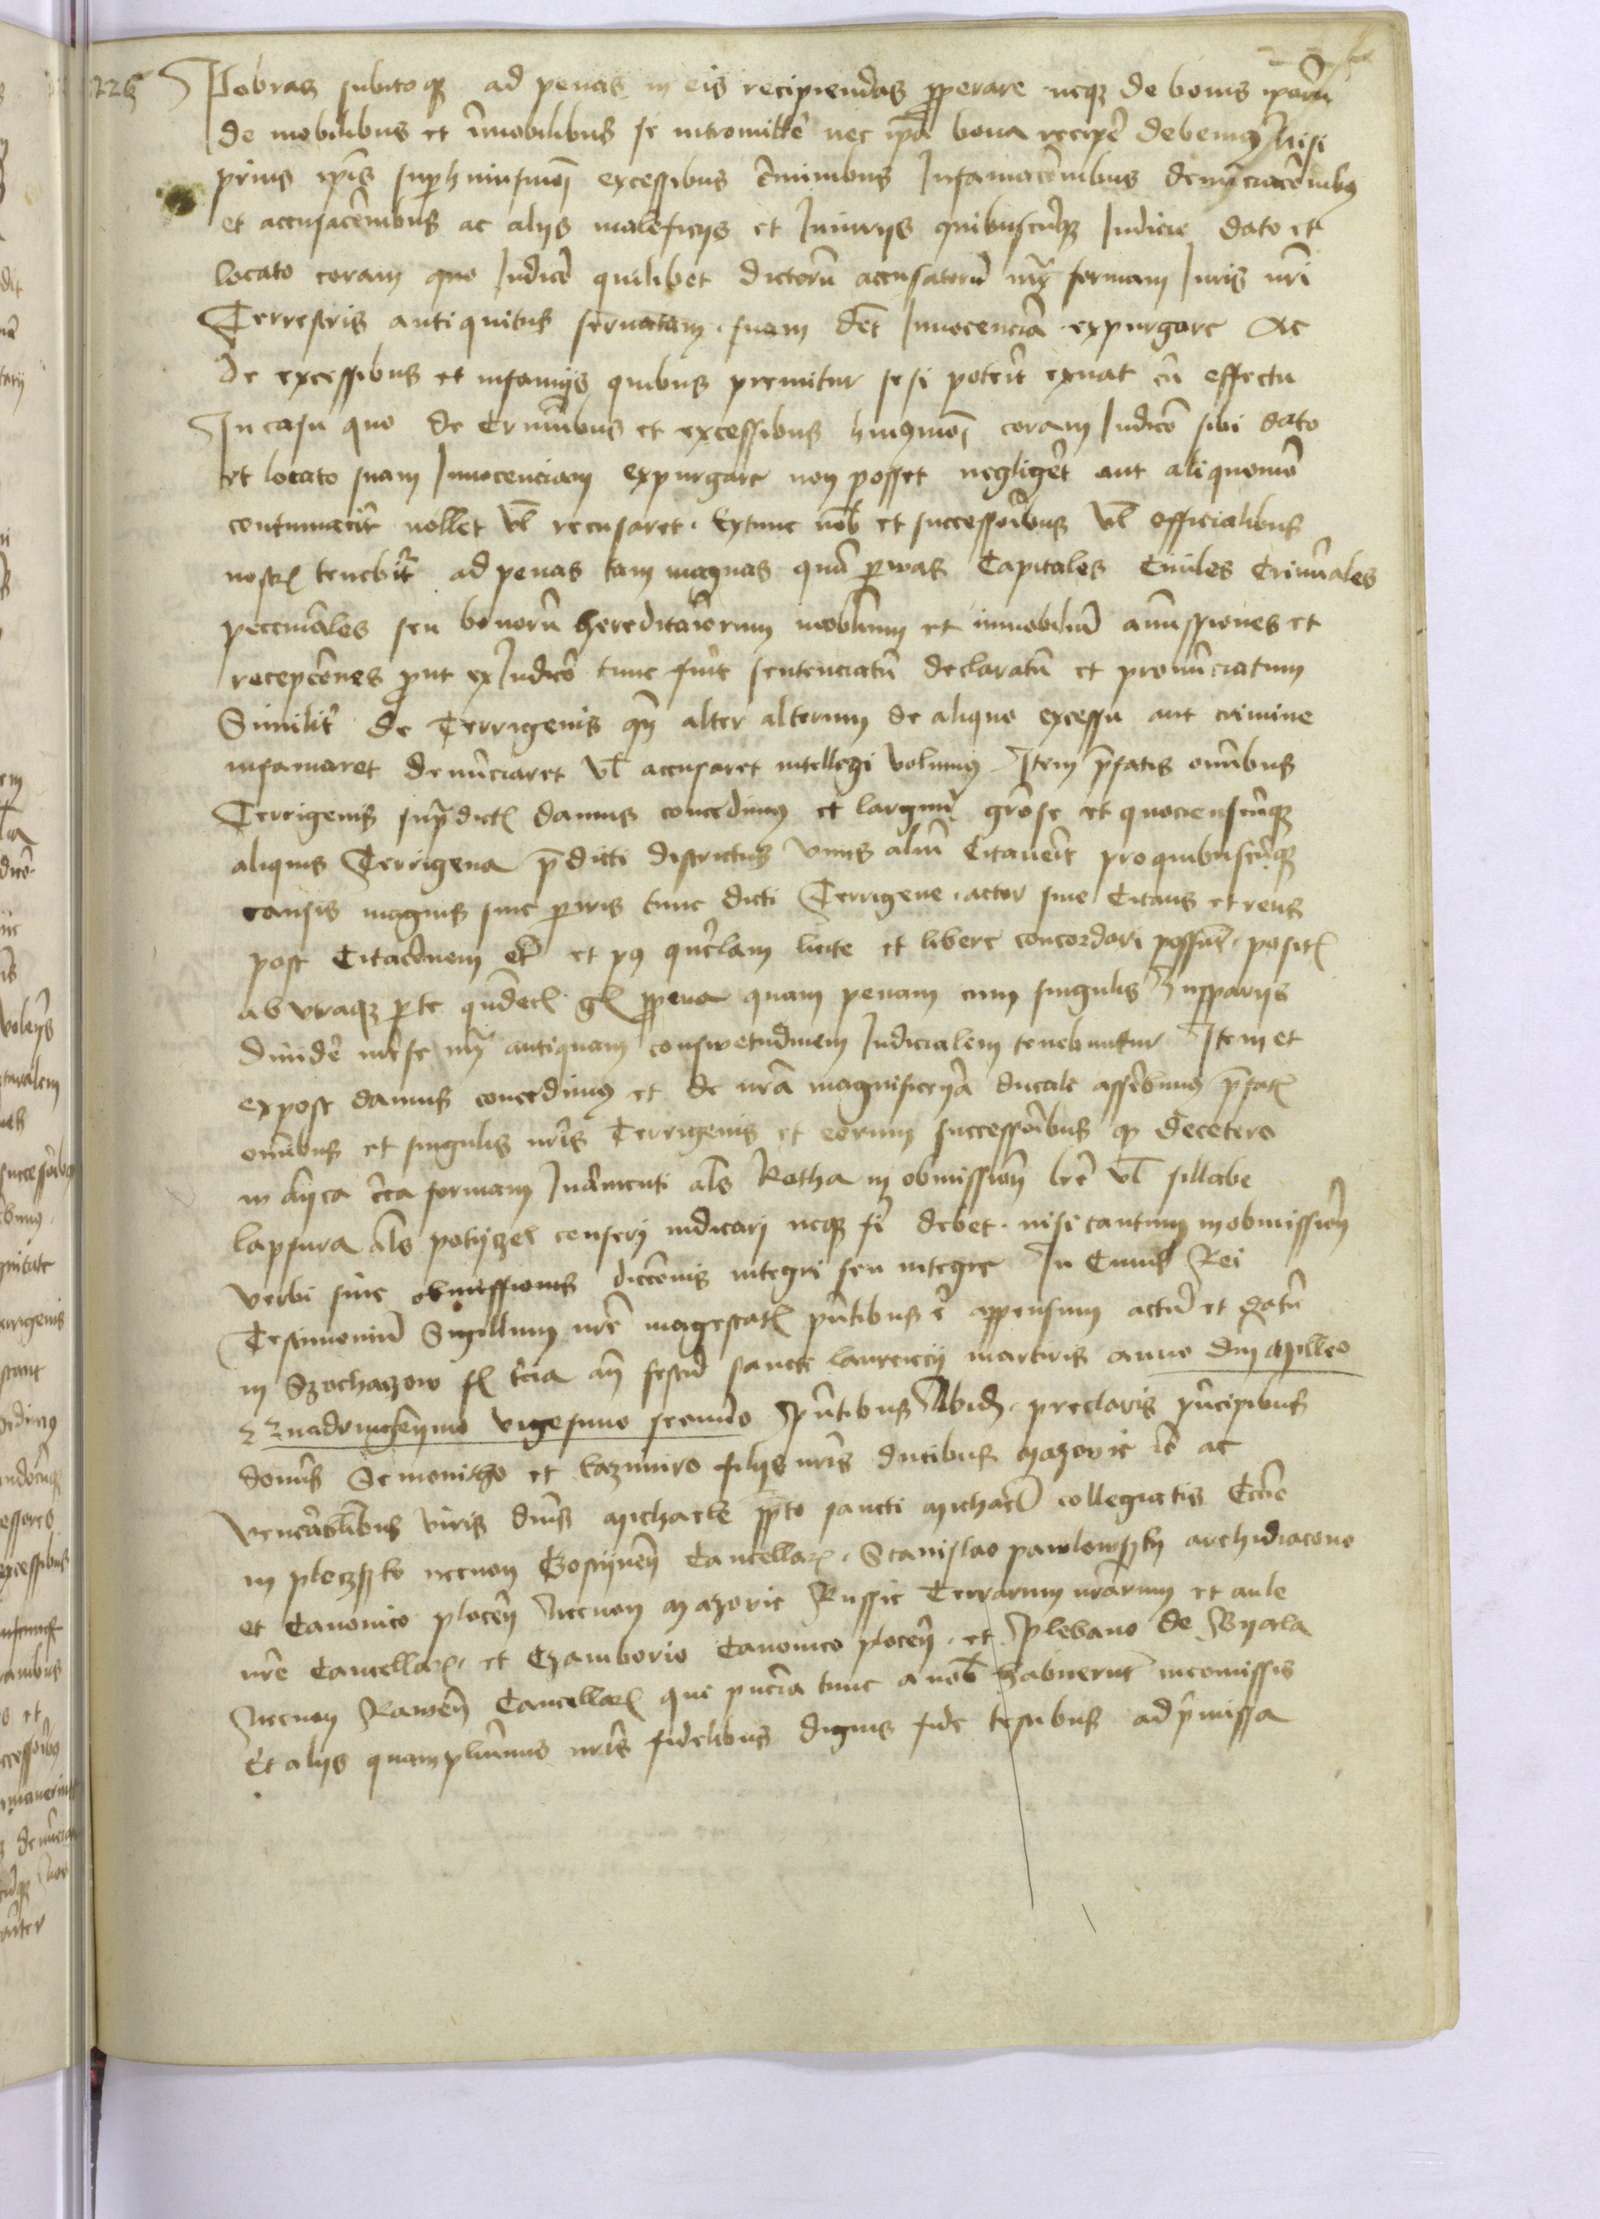 226
Pobras subitoq ad penas in eis recipiendas properare neq de bonis iporu
de mobilibus et imobilibus se intromitte nec ipa bona recipe debemus Nisi
prius ipis sup huiusmoi excessibus criminibus Infamacionibus denunciacionibus
et accusacionibus ac alijs maleficijs et Iniurijs quibuscuq Iudicio dato et
locato coram quo Iudice quilibet dictoru accusatoru iux formam Iuris nri
Terrestris antiquitus seruatam suam det Innocencia expurgare Ac
de excessibus et infamijs quibus premitur se si poterit exuat cu effectu
In casu quo de Criminibus et excessibus huiusmoi coram Iudice sibi dato
et locato suam Innocenciam expurgare non posset negliget aut aliquomo
contumacit nollet vl recusaret Extunc nob et successoribus vl officialibus
nostr tenebit ad penas tam magnas qua paruas Capitales Ciuiles Criminales
peccuniales seu bonoru hereditariorum mobilium et immobiliu amissiones et
recepciones prout ex Iudice tunc fuit sentenciatu declaratu et pronunciatum
Similit de Terrigenis qn alter alterum de aliquo excessu aut crimine
infamaret denunciaret vl accusaret intellegi volumus Item pfatis omibus
Terrigenis supradict damus concedimus et largimur grose et quocienscuq
aliquis Terrigena pdicti districtus vnus aliu Citauerit pro quibuscuq
causis magnis siue paruis tunc dicti Terrigene actor siue Citans et reus
post Citacionem et et post querelam licite et libere concordari possunt posit
ab vtraq parte qndecl gl pena quam penam cum singulis
diuide inter se iux antiquam conswetudinem Iudicialem tenebuntur Item et
expost damus concedimus et de nra magnificencia ducale assribimus pfat
omibus et singulis nris Terrigenis et eorum successoribus q decetero
in aliq ca circa formam Iuramenti als Rotha in obmission lre vl sillabe
lapsura als potijczel censeri iudicari neq fi debet nisi tantum in obmission
verbi siue obmissionis diccionis integri seu integre In Cuius Rei
Testimoniu Sigillum nre magestat pntibus e appensum actu et datu
in Szochaczow fl tercia an festu sancti laurencij martiris anno dni Millmo
Quadringentesimo vigesimo secundo Pntibus Ibid preclaris principibus
domis Semovitho et kazimiro filijs nris ducibus Mazovie ac
venerabilibus viris dnis Michaele ppto sancti Michael collegiatis Eccie
in ploczsko necnon Gostijnen Cancellar Stanislao pawlowsky archidiacono
et Canonico plocen Necnon Mazovie Russie Terrarum nrarum et aule
nre Cancellar et Czamborio Canonico plocen et Plebano de Byala
Necnon Rawen Cancellar que pncia tunc a nob habuerunt in comissis
Et alijs quampluimis nris fidelibus dignis fide testibus ad pmissa